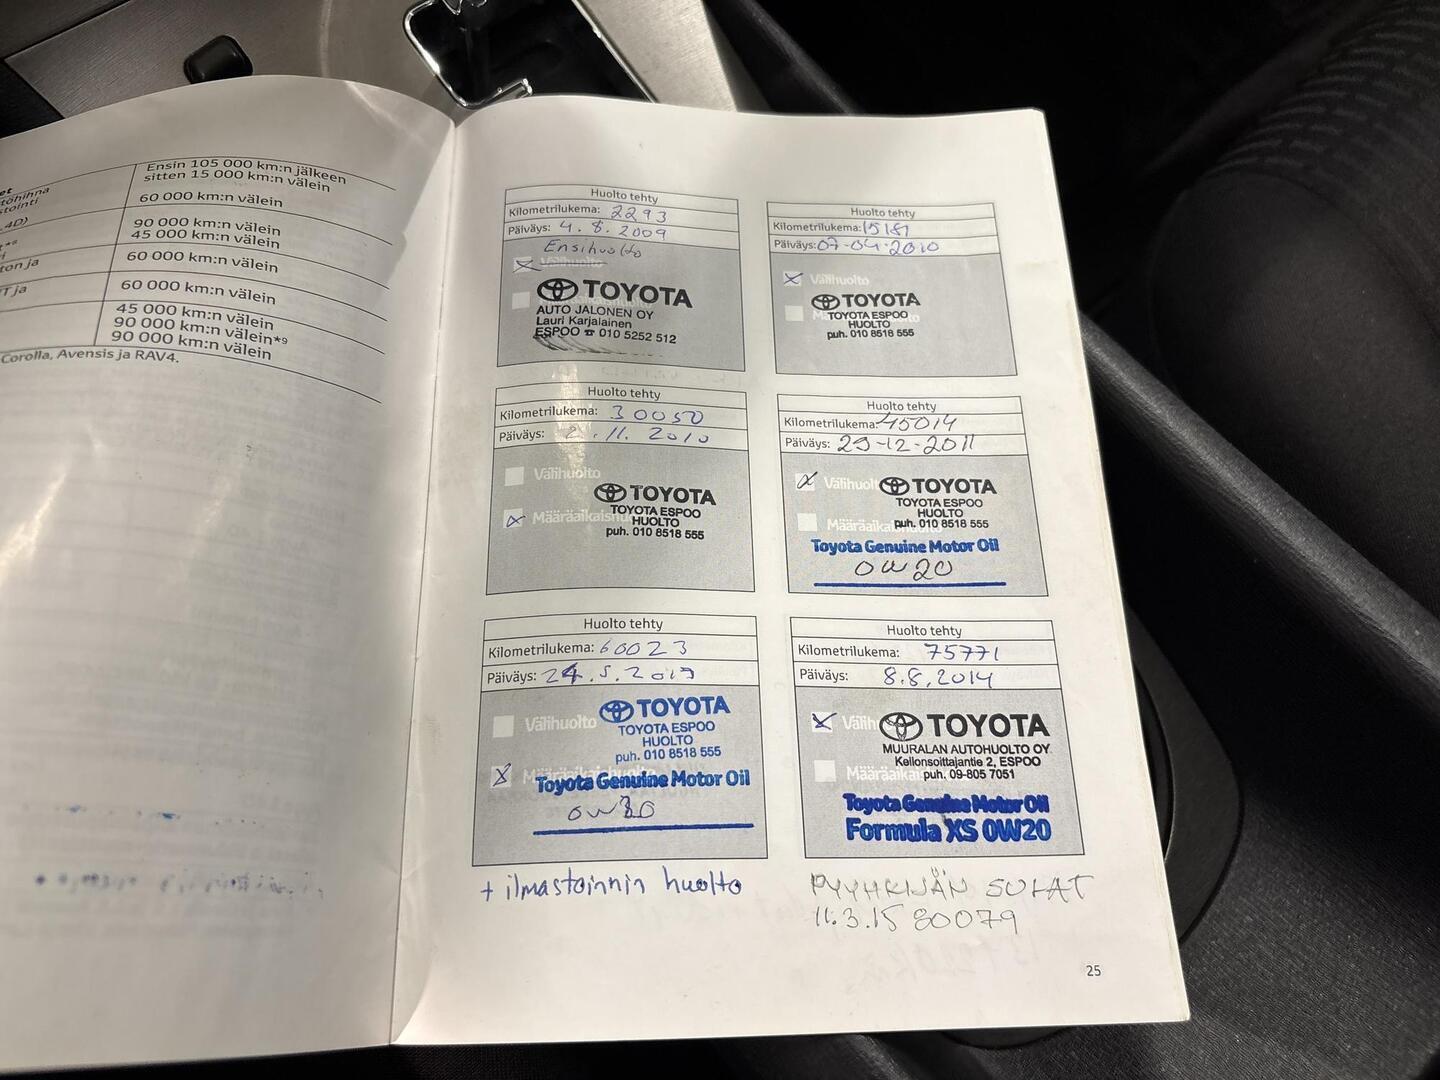 Ensin 105 000 km:n jälkeen
sitten 15 000 km:n välein
60 000 km:n välein
90 000 km:n välein
45 000 km:n välein
60 000 km:n välein
60 000 km:n välein
45 000 km:n välein
90 000 km:n välein*⁹
90 000 km:n välein
Corolla, Avensis ja RAV4.
Huolto tehty
Kilometrilukema: 2293
Päiväys: 4.8.2009
Ensihuolto
Välihuolto
TOYOTA
AUTO JALONEN OY
Lauri Karjalainen
ESPOO ☎ 010 5252 512
Huolto tehty
Kilometrilukema: 15181
Päiväys: 07-04-2010
Välihuolto
TOYOTA
TOYOTA ESPOO
HUOLTO
puh. 010 8518 555
Huolto tehty
Kilometrilukema: 30050
Päiväys: 2.11.2010
Välihuolto
TOYOTA
TOYOTA ESPOO
Määräaikaishuolto
HUOLTO
puh. 010 8518 555
Huolto tehty
Kilometrilukema: 45014
Päiväys: 29-12-2011
Välihuolto
TOYOTA
TOYOTA ESPOO
HUOLTO
puh. 010 8518 555
Toyota Genuine Motor Oil
0W20
Huolto tehty
Kilometrilukema: 60023
Päiväys: 24.5.2013
Välihuolto
TOYOTA
TOYOTA ESPOO
HUOLTO
puh. 010 8518 555
Määräaikaishuolto
Toyota Genuine Motor Oil
+ ilmastoinnin huolto
Huolto tehty
Kilometrilukema: 75771
Päiväys: 8.8.2014
TOYOTA
MUURALAN AUTOHUOLTO OY
Kellonsoittajantie 2, ESPOO
puh. 09-805 7051
Toyota Genuine Motor Oil
Formula XS 0W20
PYYHKIJÄN SULAT
11.3.15 80079
25